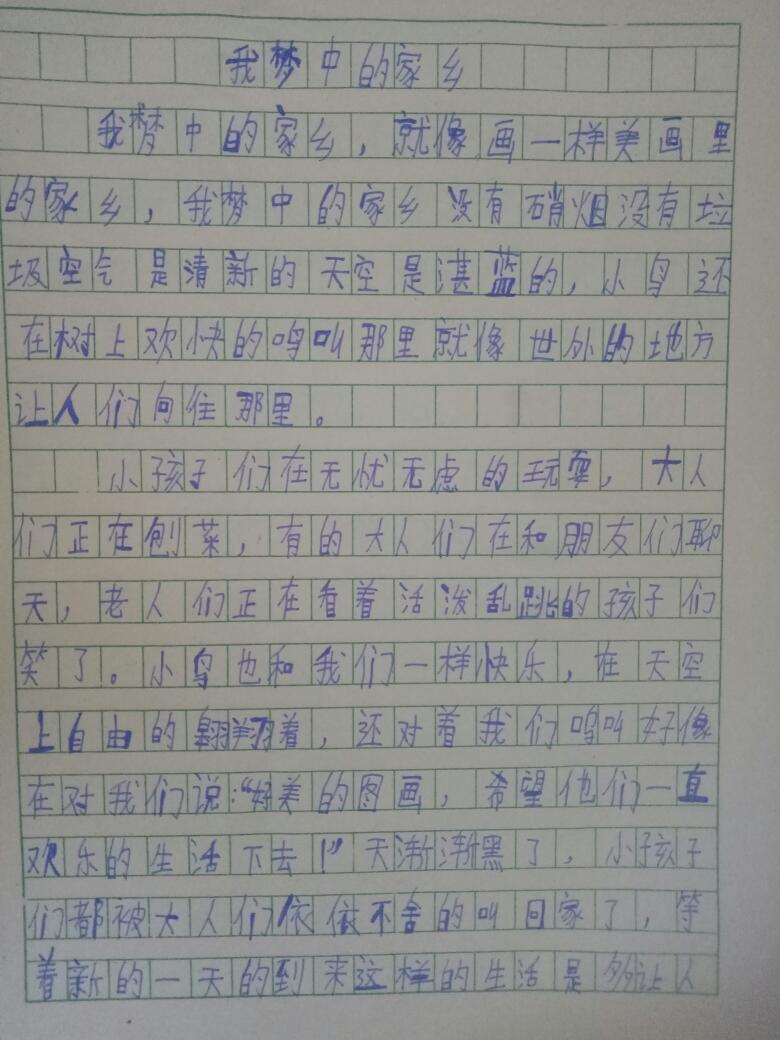 我梦中的家乡
我梦中的家乡，就像画一样美画里
的家乡，我梦中的家乡没有硝烟没有垃
圾空气是清新的天空是湛蓝的，小鸟还
在树上欢快的鸣叫那里就像世外的地方
让人们向住那里。
小孩子们在无忧无虑的玩耍，大人
们正在刨菜，有的大人们在和朋友们聊
天，老人们正在看着活泼乱跳的孩子们
笑了。小鸟也和我们一样快乐，在天空
上自由的翱翔着，还对着我们鸣叫好像
在对我们说：“好美的图画，希望他们一直
欢乐的生活下去！”天渐渐黑了，小孩子
们都被大人们依依不舍的叫回家了，等
着新的一天的到来这样的生活是多么让人